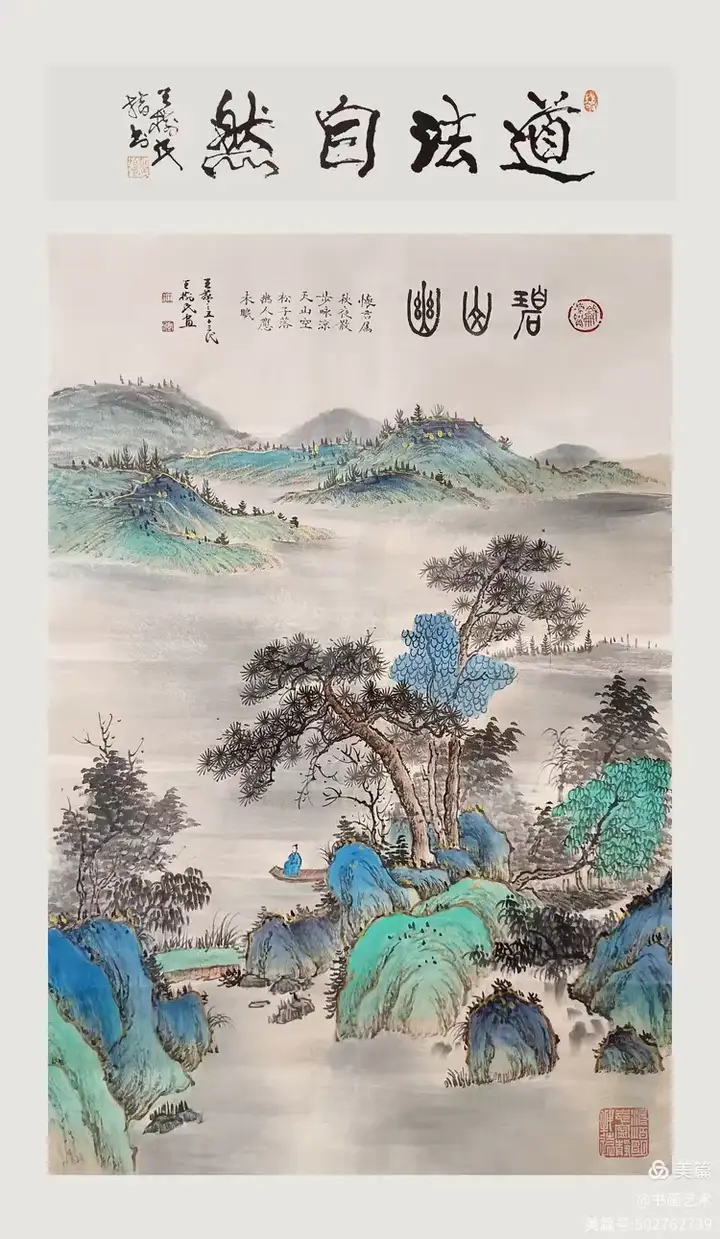 道法自然
指书
碧山幽
懷君属
秋夜散
步咏涼
天山空
松子落
幽人應
未眠
王羲之五十三代
美篇
@书画艺术
美篇号:502762739